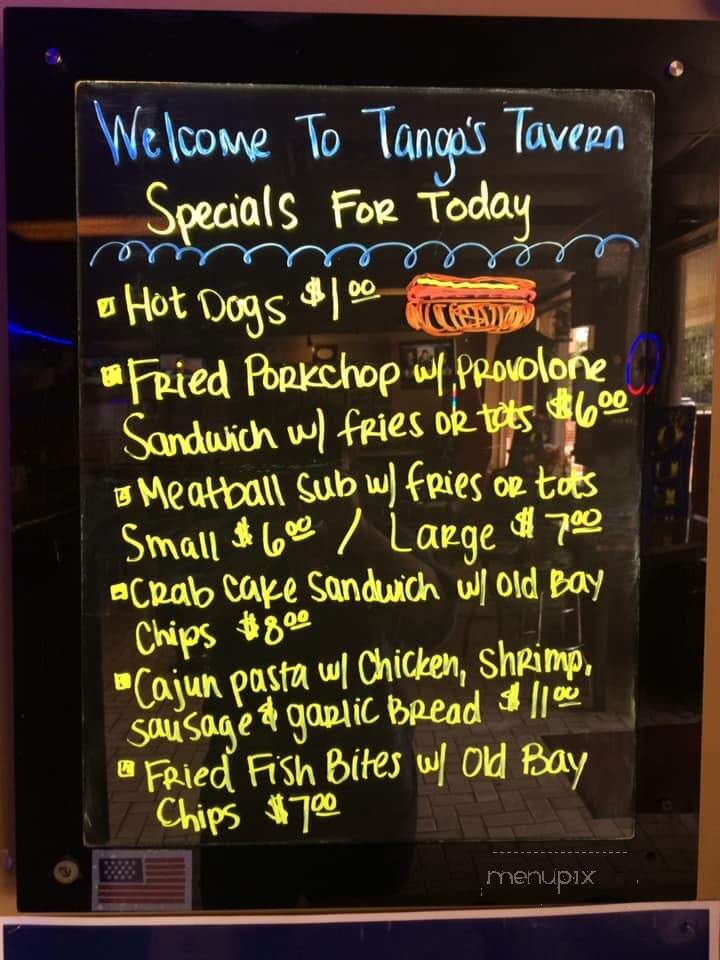 Welcome To Tango's Tavern
Specials For Today
Hot Dogs $1.00
Fried Porkchop w/ Provolone
Sandwich w/ fries or tots $6.00
Meatball Sub w/ fries or tots
Small $6.00 / Large $7.00
Crab Cake Sandwich w/ Old Bay
Chips $8.00
Cajun pasta w/ Chicken, Shrimp,
sausage & garlic Bread $11.00
Fried Fish Bites w/ Old Bay
Chips $7.00
menupix